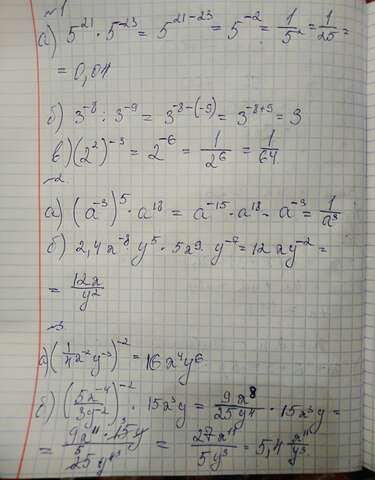 №1
а) 5²¹ · 5⁻²³ = 5²¹⁻²³ = 5⁻² = 1/5² = 1/25 =
= 0,04
б) 3⁻⁸ : 3⁻⁹ = 3⁻⁸⁻⁽⁻⁹⁾ = 3⁻⁸⁺⁹ = 3
в) (2²)⁻³ = 2⁻⁶ = 1/2⁶ = 1/64
№2
а) (a⁻³)⁵ · a¹⁸ = a⁻¹⁵ · a¹⁸ = a⁻³ = 1/a³
б) 2,4x⁻⁸ y⁵ · 5x⁹ · y⁻⁷ = 12xy⁻² =
= 12x/y²
№3
а) (1/4 x⁻² y⁻³)⁻² = 16x⁴y⁶
б) (5x⁻⁴/3y⁻²)⁻² · 15x³y = 9x⁸/25y⁴ · 15x³y =
= 9x¹¹ · 15y/25y⁴ = 27x¹¹/5y³ = 5,4 x¹¹/y³